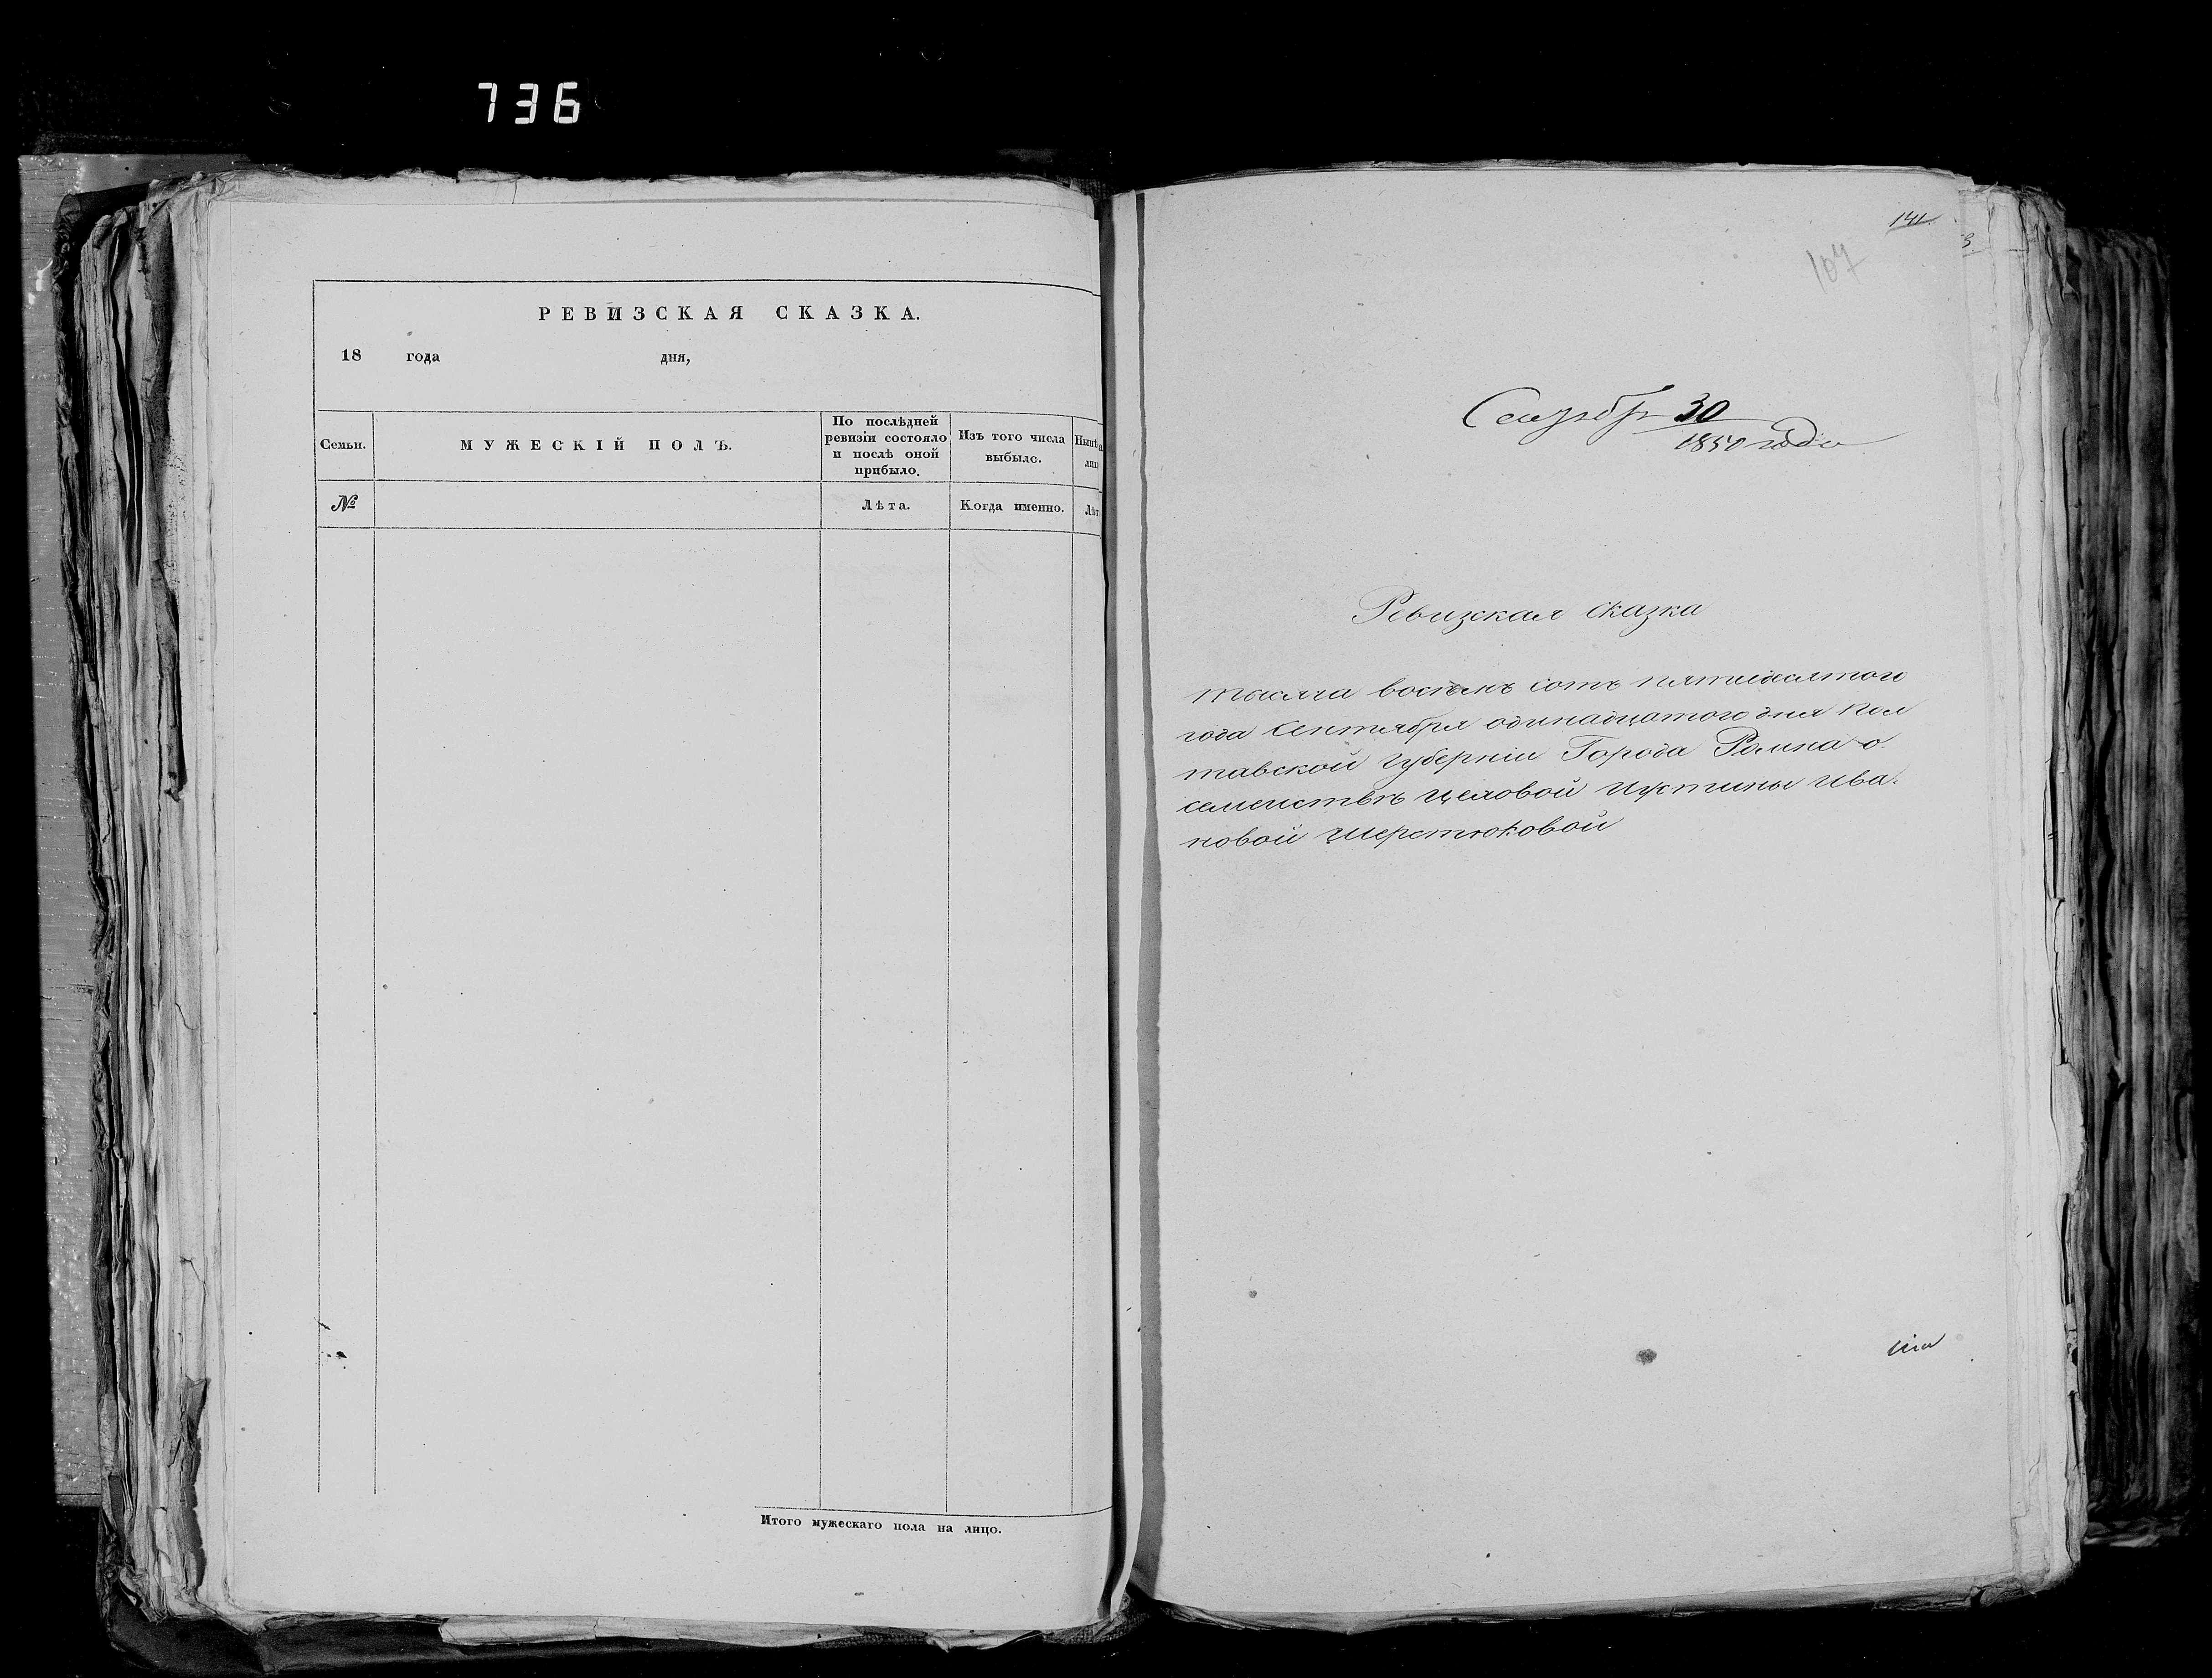 736
РЕВИЗСКАЯ СКАЗКА.
18 года дня,
Семьи.
МУЖЕСКІЙ ПОЛЪ.
По послѣдней
ревизіи состояло
и послѣ оной
прибыло.
Изъ того числа
выбыло.
№
Лѣта.
Когда именно.
Итого мужескаго пола на лицо.
141.
107
30
1850 года
Ревизская сказка
тысяча восемь сотъ пятидесятого
года сентября одинадцатого дня Пол
тавской губерніи Города Ромна о
семействѣ Иустины Ива
новой Шерстюковой